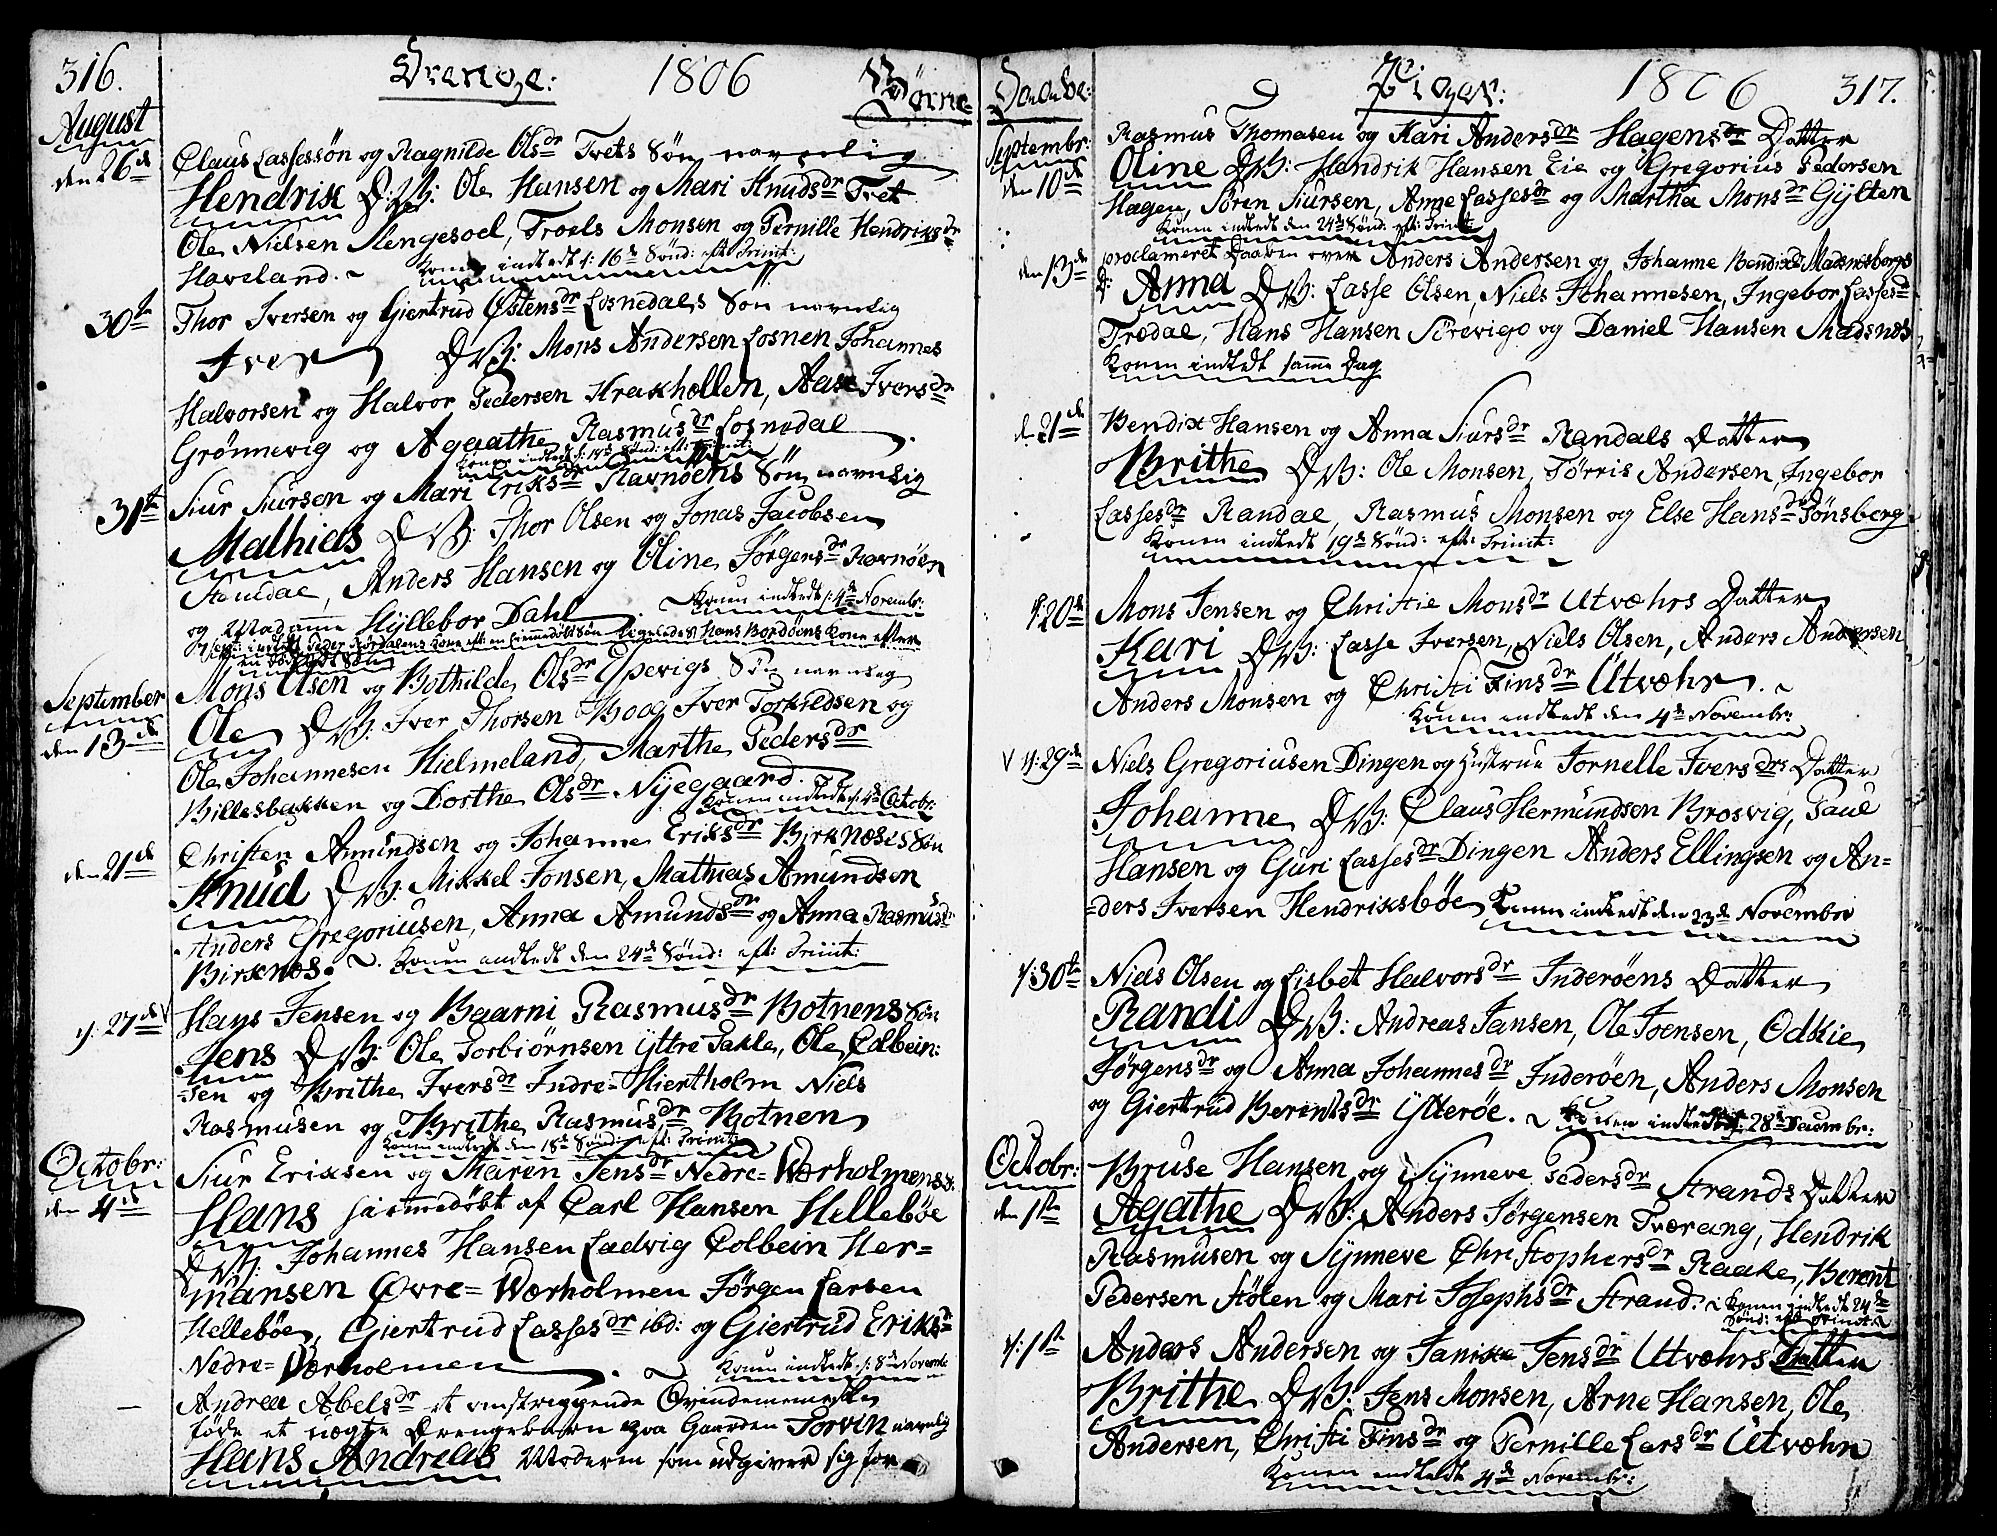 316. Drenge: 1806 Børne
August
den 26de Claus Lassessøn og Ragnilde Olsdr Tvets Søn navnlig
Hendrik D:B: Ole Hansen og Mari Knudsdr Tvet
Ole Nielsen Slengesoel, Troels Monsen og Pernille Hendriksdr
Haveland. Konen indledt d: 16de Sønd: eft: Trinit:
30te Thor Iversen og Giertrud Østensdr Losnedals Søn navnlig
Iver DB: Mons Andersen Losnen Johannes
Halvorsen og Halvor Pedersen Krakhellen, Aase Iversdr
Grønnevig og Agaathe Rasmusdr Losnedal
Konen indledt d: 17de Sønd: eft: Trinit:
31te Siur Siursen og Mari Eriksdr Ravnøens Søn navnlig
Mathias DB: Thor Olsen og Jonas Jacobsen
Stendal, Anders Hansen og Oline Jørgensdr Ravnøen
og Madame Hyllebor Dahl Konen indledt d: 4de Novembr:
indledt Peder Kone eft: en hjemmedøbt Søn ligeledes Hans Bordøens Kone efter
en dødfødt Søn
September
den 13de Mons Olsen og Bothilde Olsdr Ypevigs Søn navnlig
Ole DB: Iver Thorsen Boog Iver Torkildsen og
Ole Johannesen Hielmeland, Marthe Pedersdr
Billesbakken og Dorthe Olsdr Nyegaard. Konen indledt d: 4de Octobr:
den 21de Christen Amundsen og Johanne Eriksdr Birknæses Søn
Knud DB: Mikkel Jonsen, Mathias Amundsen
Anders Gregoriusen, Anna Amundsdr og Anna Rasmusdr
Birknæs. Konen indledt den 24de Sønd: eft: Trinit:
d: 27de Hans Jensen og Baarni Rasmusdr Botnens Søn
Jens DB: Ole Torbiørnsen Yttre Takle, Ole Colbein:
sen og Brithe Iversdr Indre-Hiertholm Niels
Rasmusen og Brithe Rasmusdr Botnen
Konen indledt den 18de Sønd: eft: Trinit:
Octobr:
den 4de Siur Eriksen og Maren Jensdr Nedre-Værholmens S:
Hans hiemmedøbt af Carl Hansen Hellebøe
DB: Johannes Hansen Ladvig Colbein Her=
mansen Øvre=Værholmen Jørgen Larsen
Hellebøe, Giertrud Lassesdr ibd: og Giertrud Eriksdr
Nedre-Værholmen. Konen indledt d: 8de Novemb
Andrea Abelsdr et omstrippende Qvindemenneske
føde et uægte Drengebarn paa Gaarden Torvin navnlig
Hans Andreas Moderen som udgiver sig for
Daabe: Piger: 1806 317.
Septembr:
den 10de Rasmus Thomasen og Kari Andersdr Hagensdr Datter
Oline DB: Hendrik Hansen Eie og Gregorius Pedersen
Hagen, Søren Siursen, Anne Lassesdr og Martha Monsdr Gylten
Konen indledt den 24de Sønd: eft: Trinit:
den 13de proclameret Daaben over Anders Andersen og Johanne Bendixdr Madsnesbergs
D: Anna DB: Lasse Olsen, Niels Johannesen, Ingebor Lassesdr
Trædal, Hans Hansen Strevigo og Daniel Hansen Madsnes
Konen indledt samme Dag
d: 21de Bendix Hansen og Anna Siursdr Randals Datter
Brithe DB: Ole Monsen, Tørris Andersen, Ingebor
Lassesdr Randal, Rasmus Monsen og Else Hansdr Tønsberg
Konen indledt 19de Sønd: eft: Trinit:
d: 20de Mons Jensen og Christie Monsdr Utvæhrs Datter
Kari DB: Lasse Iversen, Niels Olsen, Anders Andersen
Anders Monsen og Christi Finsdr Utvæhr.
Konen indledt den 4de Novembr:
d: 29de Niels Gregoriusen Dingen og Hustrue Jornelle Iversdrs Datter
Johanne DB: Claus Hermundsen Brosvig, Paul
Hansen og Guri Lassesdr Dingen Anders Ellingsen og An=
=ders Iversen Hendriksbøe Konen indledt den 23de Novembr
d: 30te Niels Olsen og Lisbet Halvorsdr Inderøens Datter
Randi DB: Andreas Jansen, Ole Joensen, Odkie
Jørgensdr og Anna Johannesdr Inderøen, Anders Monsen
og Giertrud Berentsdr Ytterøe. Konen indledt d: 28de Decembr:
Octobr:
den 1ste Bruse Hansen og Synneve Pedersdr Strands Datter
Agathe DB: Anders Jørgensen Tværang, Hendrik
Rasmusen og Synneve Christophersdr Raake, Berent
Pedersen Stølen og Mari Josephsdr Strand. Konen indledt 24de
Sønd: eft: Trinit:
d: 1ste Anders Andersen og Janike Jensdr Utvæhrs Datter
Brithe DB: Jens Monsen, Arne Hansen, Ole
Andersen, Christi Finsdr og Pernille Larsdr Utvæhr
Konen indledt 4de Novembr: